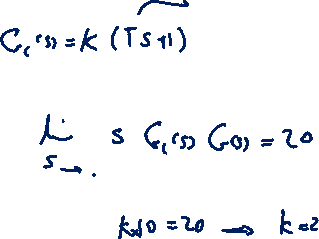 C_c(s) = K (Ts+1)
lim s→0 s G_c(s) G(s) = 20
k×10 = 20 → k=2